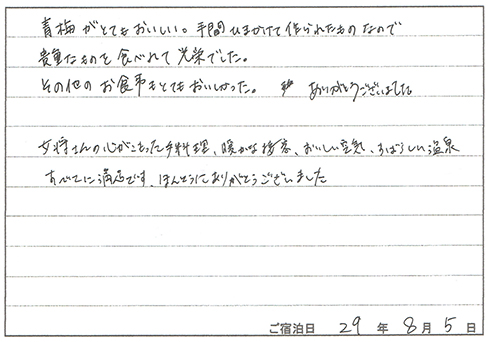 青梅がとてもおいしい。手間ひまかけて作られたものなので
貴重なものを食べれて光栄でした。
その他のお食事もとてもおいしかった。 ありがとうございました
女将さんの心がこもった手料理、暖かな接客、おいしい空気、すばらしい温泉
すべてに満足です、ほんとうにありがとうございました
ご宿泊日 29 年 8 月 5 日